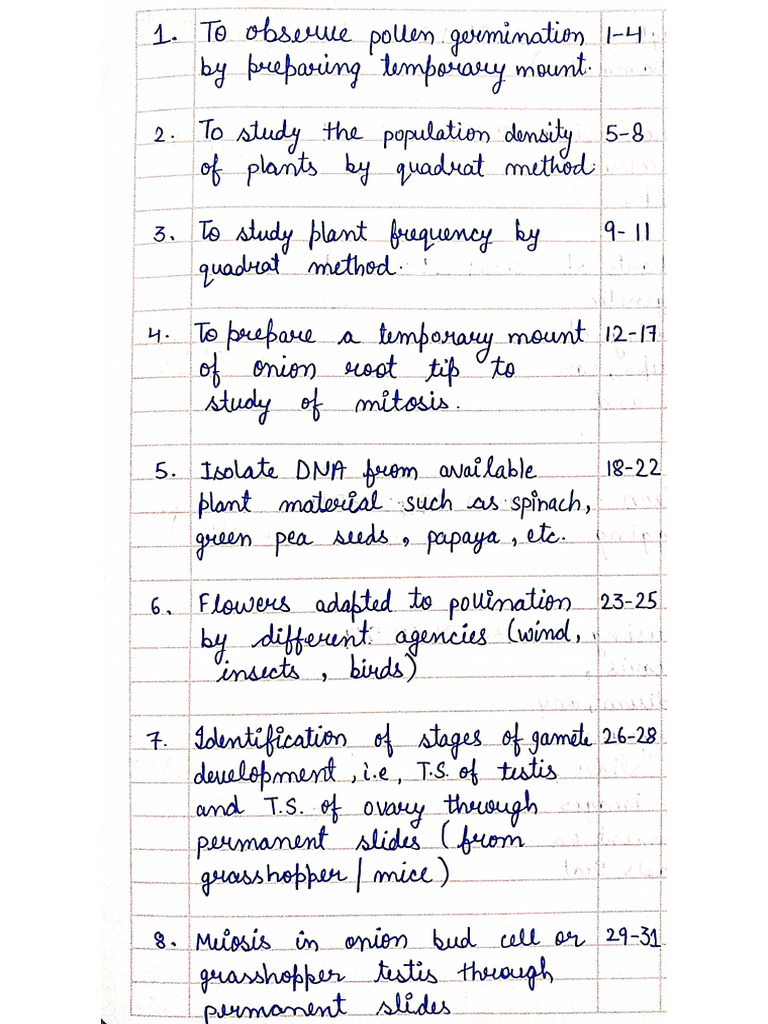 1. To observe pollen germination 1-4
by preparing temporary mount.
2. To study the population density 5-8
of plants by quadrat method.
3. To study plant frequency by 9-11
quadrat method.
4. To prepare a temporary mount 12-17
of onion root tip to
study of mitosis.
5. Isolate DNA from available 18-22
plant material such as spinach,
green pea seeds, papaya, etc.
6. Flowers adapted to pollination 23-25
by different agencies (wind,
insects, birds)
7. Identification of stages of gamete 26-28
development, i.e, T.S. of testis
and T.S. of ovary through
permanent slides (from
grasshopper/mice)
8. Meiosis in onion bud cell or 29-31
grasshopper testis through
permanent slides